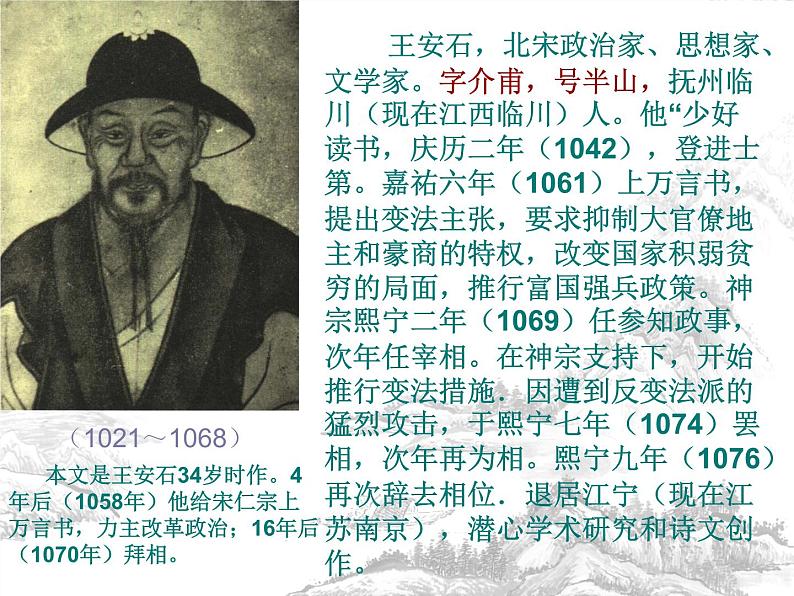 王安石，北宋政治家、思想家、
文学家。字介甫，号半山，抚州临
川（现在江西临川）人。他“少好
读书，庆历二年（1042），登进士
第。嘉祐六年（1061）上万言书，
提出变法主张，要求抑制大官僚地
主和豪商的特权，改变国家积弱贫
穷的局面，推行富国强兵政策。神
宗熙宁二年（1069）任参知政事，
次年任宰相。在神宗支持下，开始
推行变法措施．因遭到反变法派的
猛烈攻击，于熙宁七年（1074）罢
相，次年再为相。熙宁九年（1076）
再次辞去相位．退居江宁（现在江
苏南京），潜心学术研究和诗文创
作。
（1021～1068）
本文是王安石34岁时作。4
年后（1058年）他给宋仁宗上
万言书，力主改革政治；16年后
（1070年）拜相。